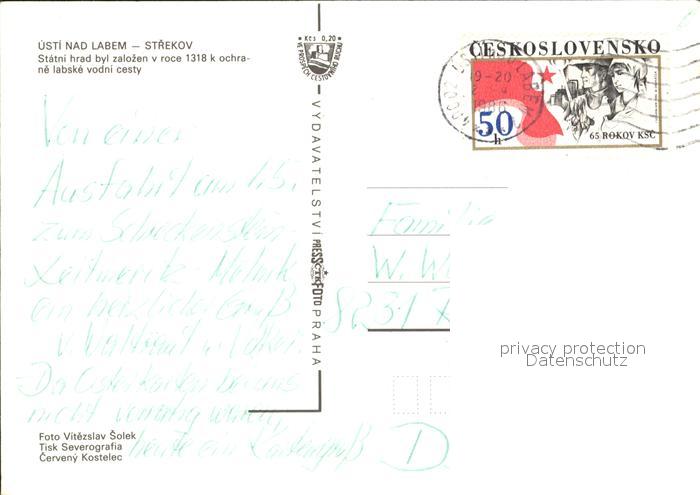 ÚSTÍ NAD LABEM — STŘEKOV
Státní hrad byl založen v roce 1318 k ochra-
ně labské vodní cesty
Kčs 0,20
VE PROSPĚCH CESTOVNÍHO RUCHU
ČESKOSLOVENSKO
50
h
65 ROKOV KSČ
Von einer
Ausfahrt am 1.5.
zum Schreckenstein-
Leitmeritz - Melnik
ein herzlicher Gruß
Da Osterkarten bei uns
nicht
heute ein Kartengruß
VYDAVATELSTVÍ PRESSFOTO PRAHA
Familie
W.
8231
D
privacy protection
Datenschutz
Foto Vítězslav Šolek
Tisk Severografia
Červený Kostelec